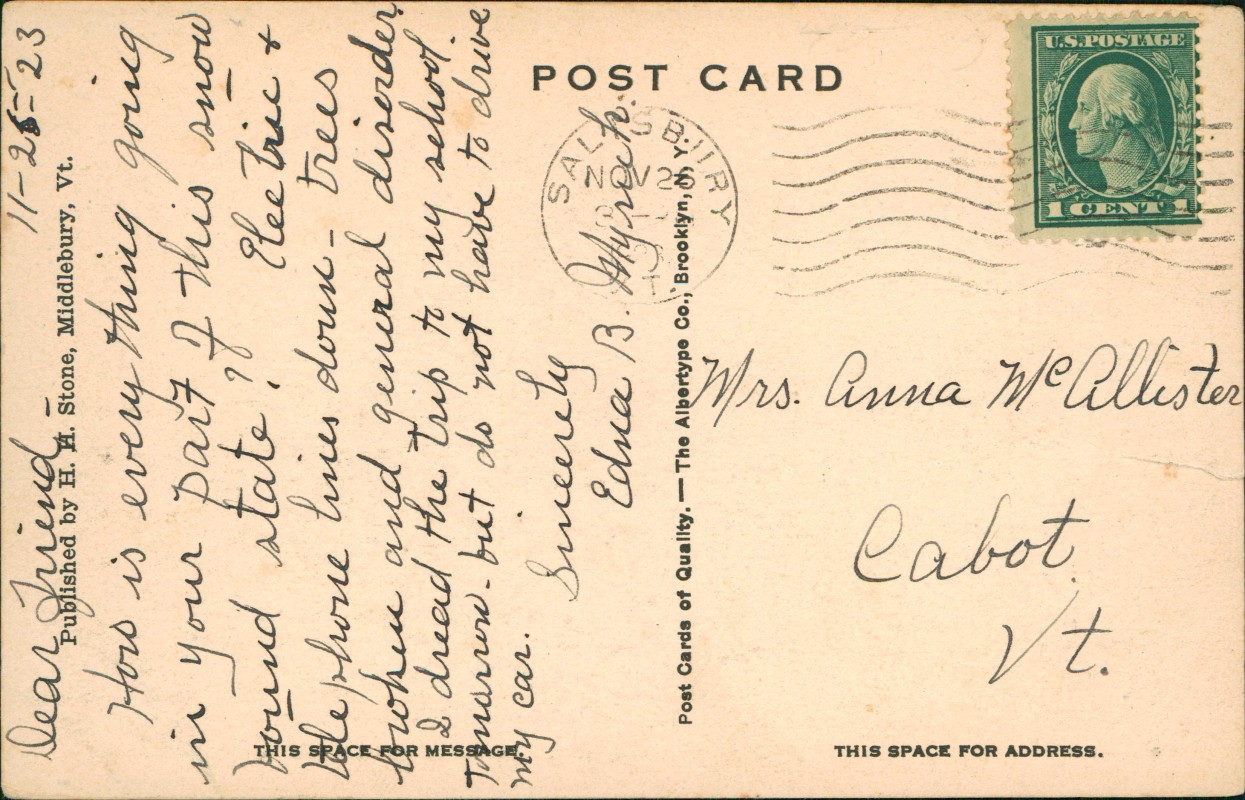 11-25-23
Dear Friend-
How is every thing going
in your part of this snow
bound state? Electric &
telephone lines down - trees
broken and general disorder.
I dread the trip to my school
Tomorrow - but do not have to drive
my car.
Sincerely
Edna B.
Published by H. H. Stone, Middlebury, Vt.
THIS SPACE FOR MESSAGE.
Post Cards of Quality. — The Albertype Co., Brooklyn, N. Y.
POST CARD
SALISBURY
NOV 26
U.S. POSTAGE
1 CENT 1
Mrs. Anna McAllister
Cabot
Vt.
THIS SPACE FOR ADDRESS.